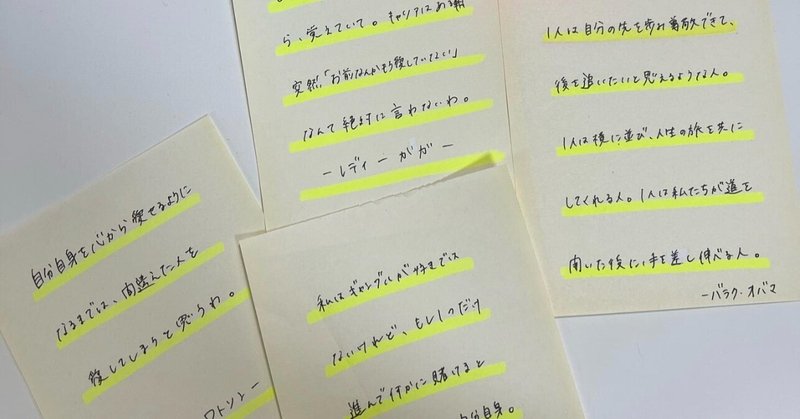 ら、覚えていて。キャリアはある朝
突然「お前なんかもう愛していない」
なんて絶対に言わないわ。
ーレディーガガー
1人は自分の先を歩み尊敬できて、
後を追いたいと思えるような人。
1人は横に並び、人生の旅を共に
してくれる人。1人は私たちが道を
開いた後に手を差し伸べる人。
ーバラク・オバマ
自分自身を心から愛せるように
なるまでは、間違えた人を
愛してしまうと思うわ。
ワトソンー
私はギャンブルが好きでは
ないけれど、もし1つだけ
進んで何かに賭けると
自分自身。